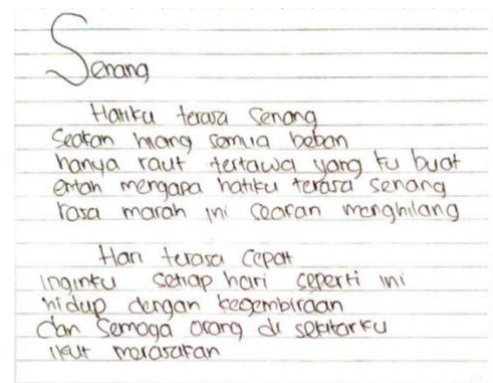 Senang
Hatiku terasa senang
Seakan hilang semua beban
hanya raut tertawa yang ku buat
entah mengapa hatiku terasa senang
rasa marah ini seakan menghilang
Hari terasa cepat
inginku setiap hari seperti ini
hidup dengan kegembiraan
dan semoga orang di sekitarku
ikut merasakan